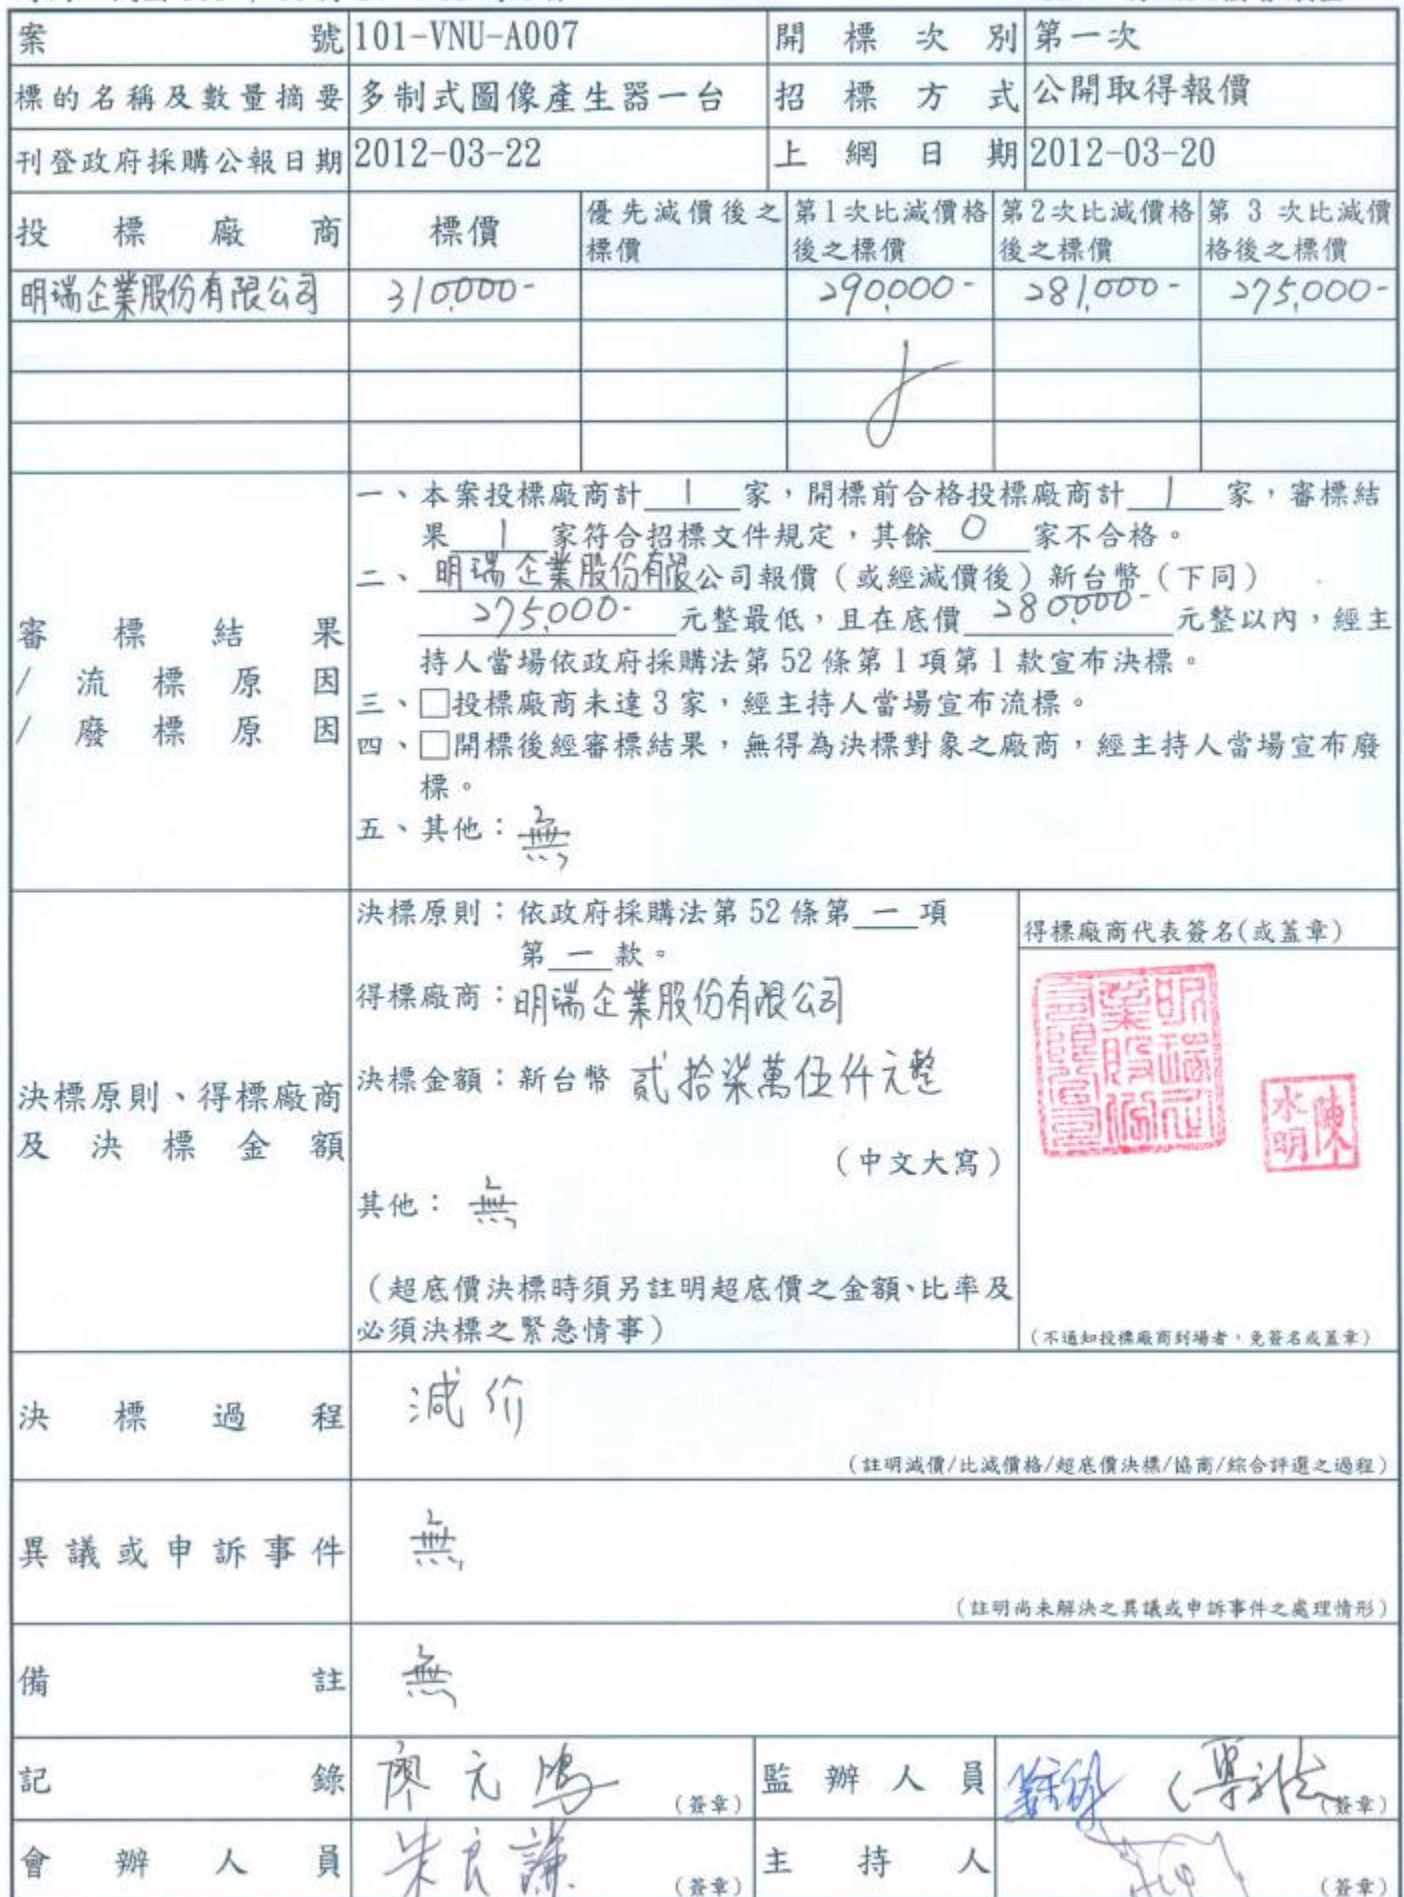 案號 101-VNU-A007 開標次別 第一次
標的名稱及數量摘要 多制式圖像產生器一台 招標方式 公開取得報價
刊登政府採購公報日期 2012-03-22 上網日期 2012-03-20
投標廠商 標價 優先減價後之 第1次比減價格 第2次比減價格 第 3 次比減價
標價 後之標價 後之標價 格後之標價
明瑞企業股份有限公司 310,000- 290,000- 281,000- 275,000-
審標結果
/流標原因
/廢標原因
一、本案投標廠商計 1 家，開標前合格投標廠商計 1 家，審標結
果 1 家符合招標文件規定，其餘 0 家不合格。
二、明瑞企業股份有限公司報價（或經減價後）新台幣（下同）
275,000- 元整最低，且在底價 280,000- 元整以內，經主
持人當場依政府採購法第 52 條第 1 項第 1 款宣布決標。
三、□投標廠商未達 3 家，經主持人當場宣布流標。
四、□開標後經審標結果，無得為決標對象之廠商，經主持人當場宣布廢
標。
五、其他：無
決標原則、得標廠商
及決標金額
決標原則：依政府採購法第 52 條第 一 項
第 一 款。
得標廠商：明瑞企業股份有限公司
決標金額：新台幣 貳拾柒萬伍仟元整
（中文大寫）
其他： 無
（超底價決標時須另註明超底價之金額、比率及
必須決標之緊急情事）
得標廠商代表簽名(或蓋章)
明瑞企業股份有限公司
陳水明
（不通知投標廠商到場者，免簽名或蓋章）
決標過程 減价
（註明減價/比減價格/超底價決標/協商/綜合評選之過程）
異議或申訴事件 無
（註明尚未解決之異議或申訴事件之處理情形）
備註 無
記錄 廖元鴻 （簽章） 監辦人員 （簽章）
會辦人員 朱良謙 （簽章） 主持人 （簽章）